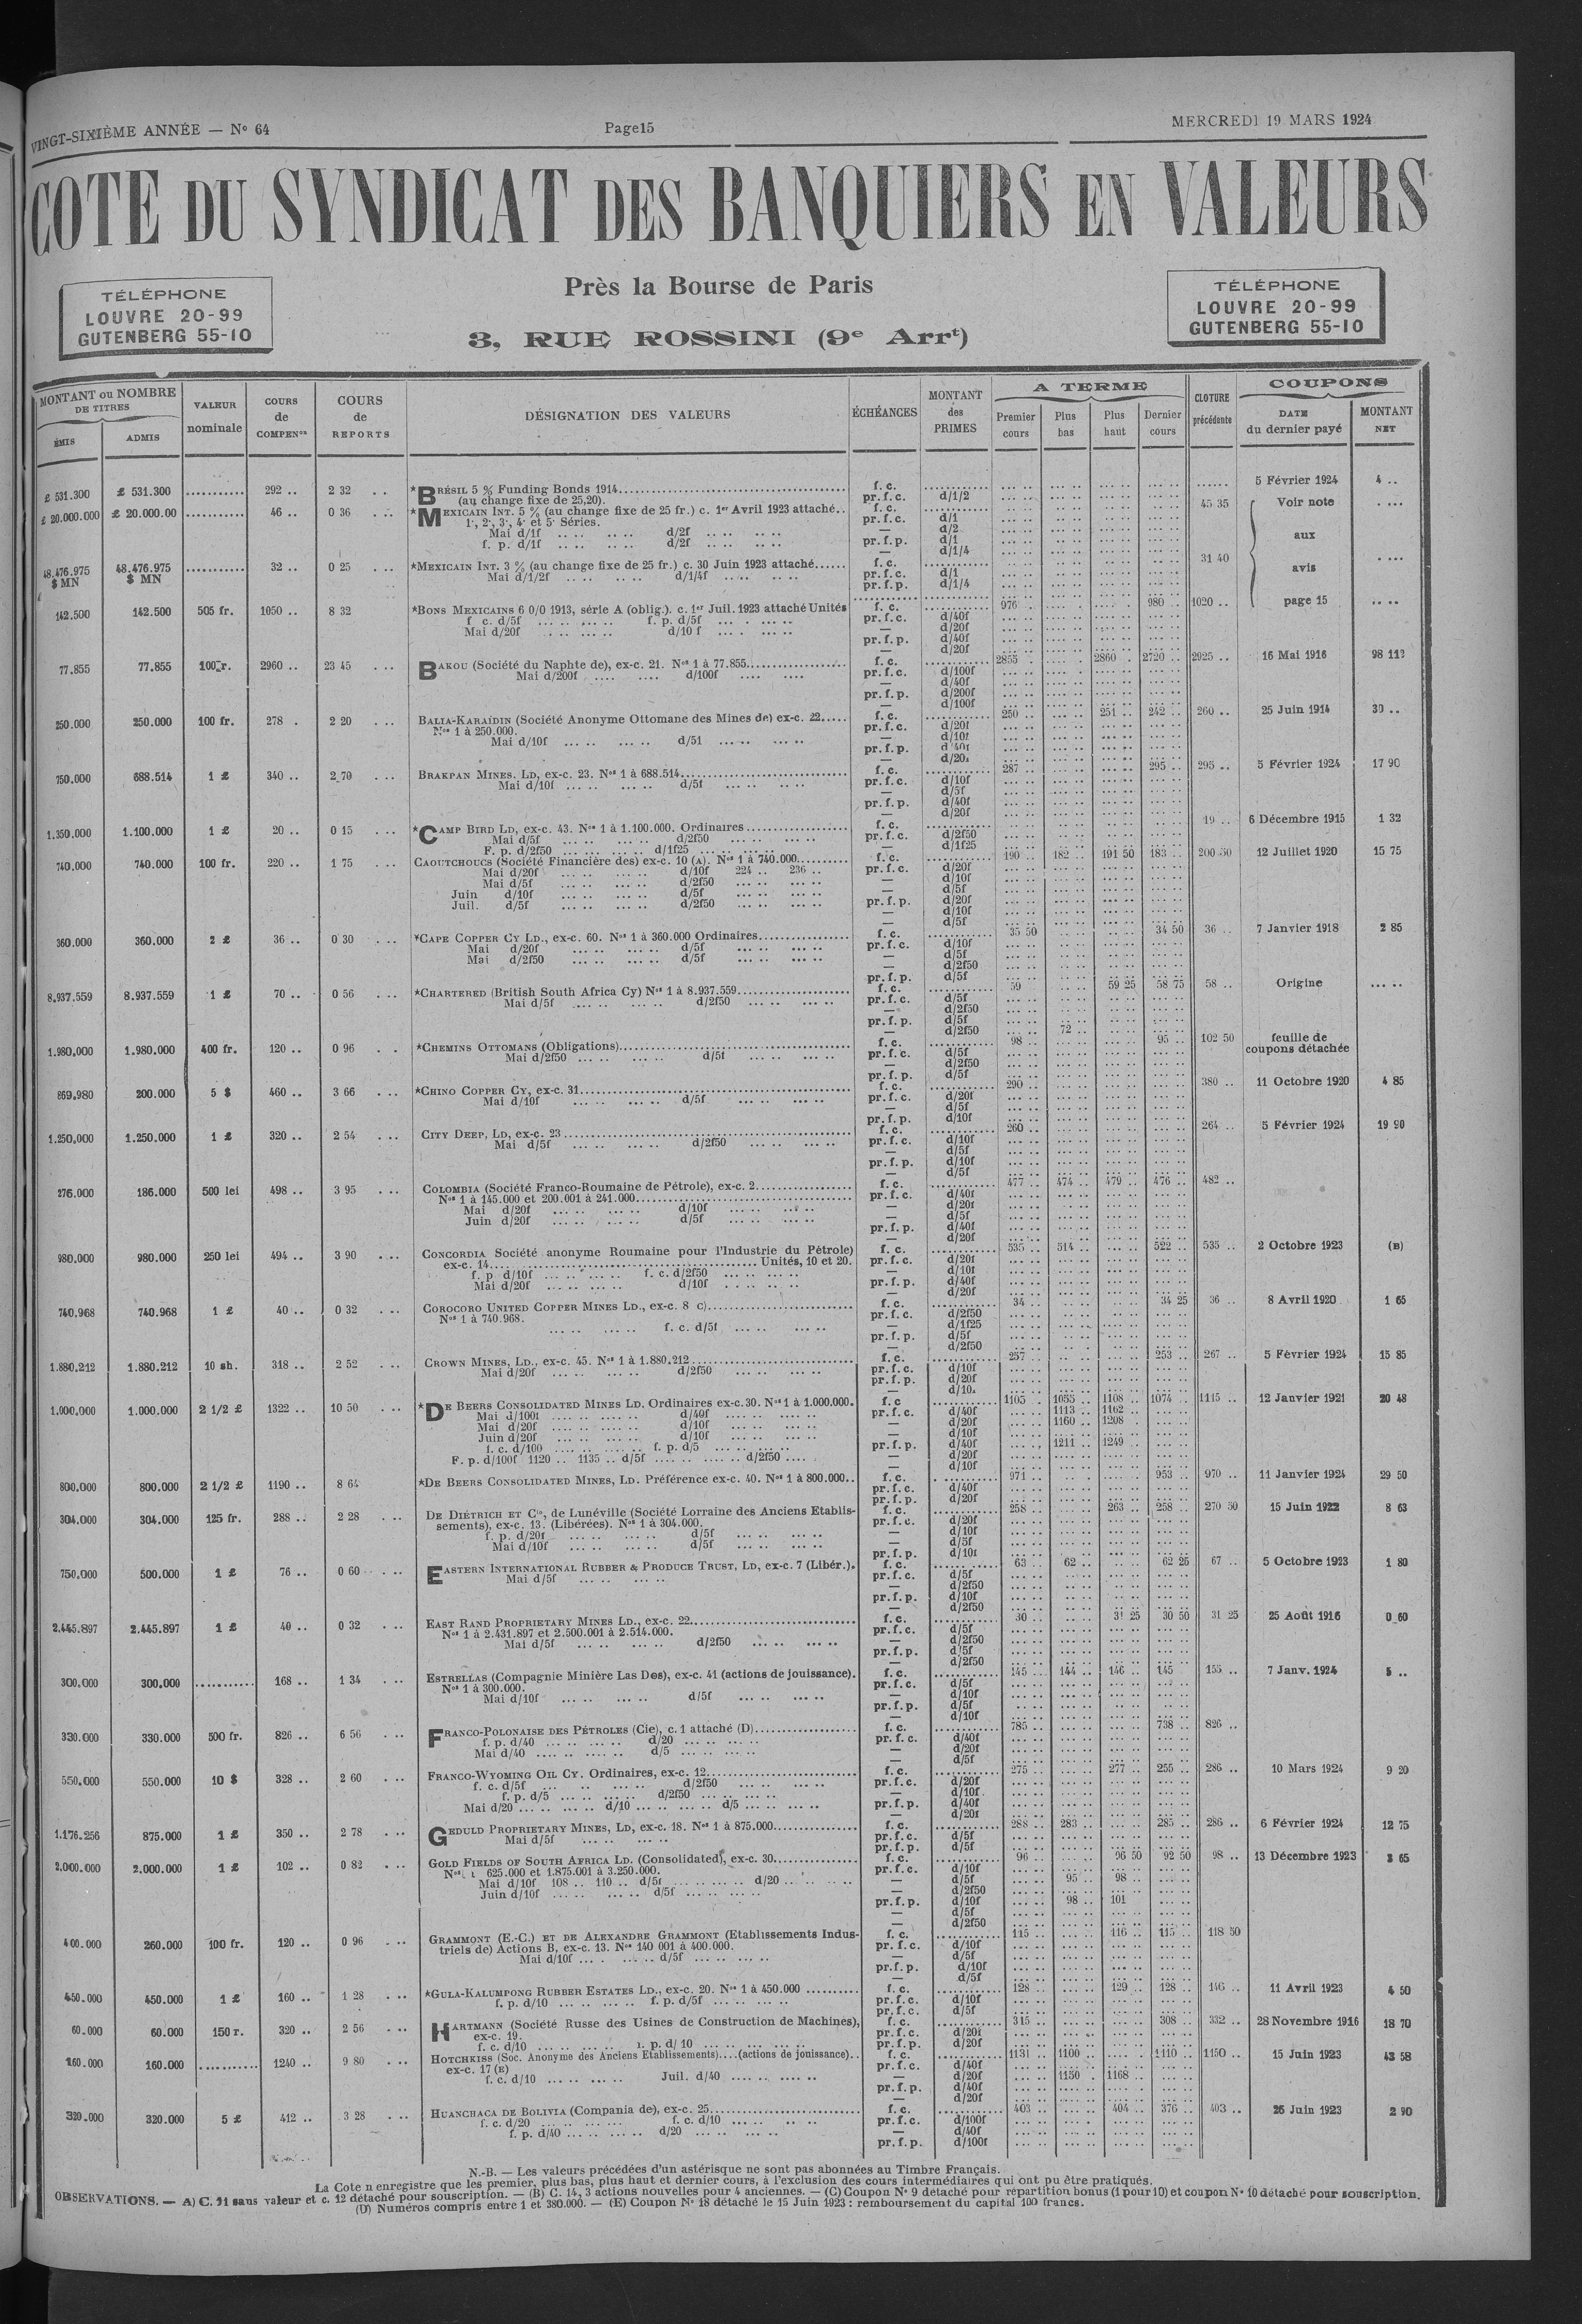 VINGT-SIXIÈME ANNÉE — No 64
Page15
MERCREDI 19 MARS 1924
COTE DU SYNDICAT DES BANQUIERS EN VALEURS
Près la Bourse de Paris
3, RUE ROSSINI (9e Arrt)
TÉLÉPHONE
LOUVRE 20-99
GUTENBERG 55-10
TÉLÉPHONE
LOUVRE 20-99
GUTENBERG 55-10
MONTANT ou NOMBRE DE TITRES
ÉMIS ADMIS
VALEUR nominale
COURS de COMPENon
COURS de REPORTS
DÉSIGNATION DES VALEURS
ÉCHÉANCES
MONTANT des PRIMES
A TERME
Premier cours Plus bas Plus haut Dernier cours
CLOTURE précédente
COUPONS
DATE du dernier payé MONTANT NET
£ 531.300 £ 531.300 ........... 292 .. 2 32 .. *BRÉSIL 5 % Funding Bonds 1914 f. c. 5 Février 1924 4 ..
(au change fixe de 25,20). pr. f. c. d/1/2
£ 20.000.000 £ 20.000.00 ........... 46 .. 0 36 ... *MEXICAIN INT. 5 % (au change fixe de 25 fr.) c. 1er Avril 1923 attaché.. f. c. 45 35 Voir note
1·, 2·, 3·, 4· et 5· Séries. pr. f. c. d/1
Mai d/1f d/2f — d/2
f. p. d/1f d/2f pr. f. p. d/1 aux
— d/1/4
48.476.975 $ MN 48.476.975 $ MN ........... 32 .. 0 25 ... *MEXICAIN INT. 3 % (au change fixe de 25 fr.) c. 30 Juin 1923 attaché...... f. c. 31 40 avis
Mai d/1/2f d/1/4f pr. f. c. d/1
pr. f. p. d/1/4
142.500 142.500 505 fr. 1050 .. 8 32 *BONS MEXICAINS 6 0/0 1913, série A (oblig.). c. 1er Juil. 1923 attaché Unités f. c. 976 980 .. 1020 .. page 15
f c. d/5f f. p. d/5f pr. f. c. d/40f
Mai d/20f d/10 f — d/20f
pr. f. p. d/40f
— d/20f
77.855 77.855 2960 .. 23 45 ... BAKOU (Société du Naphte de), ex-c. 21. Nos 1 à 77.855 f. c. 2855 2860 2720 .. 2925 .. 16 Mai 1916
Mai d/200f d/100f pr. f. c. d/100f
— d/40f
pr. f. p. d/200f
— d/100f
250.000 250.000 100 fr. 278 . 2 20 ... BALIA-KARAÏDIN (Société Anonyme Ottomane des Mines de) ex-c. 22..... f. c. 250 .. 251 .. 242 .. 260 .. 25 Juin 1914 30 ..
Nos 1 à 250.000. pr. f. c. d/20f
Mai d/10f d/5f — d/10f
pr. f. p. d/40f
— d/20f
750.000 688.514 1 £ 340 .. 2 70 ... BRAKPAN MINES. LD, ex-c. 23. Nos 1 à 688.514 f. c. 287 .. 295 .. 295 .. 5 Février 1924 17 90
Mai d/10f d/5f pr. f. c. d/10f
— d/5f
pr. f. p. d/40f
— d/20f
1.350.000 1.100.000 1 £ 20 .. 0 15 ... *CAMP BIRD LD, ex-c. 43. Nos 1 à 1.100.000. Ordinaires f. c. 19 .. 6 Décembre 1915 1 32
Mai d/5f d/2f50 pr. f. c. d/2f50
F. p. d/2f50 d/1f25 — d/1f25
740.000 740.000 100 fr. 220 .. 1 75 ... CAOUTCHOUCS (Société Financière des) ex-c. 10 (A). Nos 1 à 740.000 f. c. 190 .. 182 .. 191 50 183 .. 200 50 12 Juillet 1920 15 75
Mai d/20f d/10f 224 .. 236 .. pr. f. c. d/20f
Mai d/5f d/2f50 — d/10f
Juin d/10f d/5f — d/5f
Juil. d/5f d/2f50 pr. f. p. d/20f
— d/10f
— d/5f
360.000 360.000 2 £ 36 .. 0 30 ... *CAPE COPPER CY LD., ex-c. 60. Nos 1 à 360.000 Ordinaires f. c. 35 50 34 50 36 .. 7 Janvier 1918 2 85
Mai d/20f d/5f pr. f. c. d/10f
Mai d/2f50 d/5f — d/5f
— d/2f50
pr. f. p. d/5f
8.937.559 8.937.559 1 £ 70 .. 0 56 ... *CHARTERED (British South Africa Cy) Nos 1 à 8.937.559 f. c. 59 59 25 58 75 58 .. Origine
Mai d/5f d/2f50 pr. f. c. d/5f
— d/2f50
pr. f. p. d/5f
— d/2f50 72 ..
1.980.000 1.980.000 400 fr. 120 .. 0 96 .. *CHEMINS OTTOMANS (Obligations) f. c. 98 .. 95 .. 102 50 feuille de coupons détachée
Mai d/2f50 d/5f pr. f. c. d/5f
— d/2f50
pr. f. p. d/5f
869.980 200.000 5 $ 460 .. 3 66 ... *CHINO COPPER CY, ex-c. 31 f. c. 290 .. 380 .. 11 Octobre 1920 4 85
Mai d/10f d/5f pr. f. c. d/20f
— d/5f
pr. f. p. d/10f
1.250.000 1.250.000 1 £ 320 .. 2 54 ... CITY DEEP, LD, ex-c. 23 f. c. 260 .. 264 .. 5 Février 1924 19 90
Mai d/5f d/2f50 pr. f. c. d/10f
— d/5f
pr. f. p. d/10f
— d/5f
276.000 186.000 500 lei 498 .. 3 95 ... COLOMBIA (Société Franco-Roumaine de Pétrole), ex-c. 2 f. c. 477 .. 474 .. 479 .. 476 .. 482 ..
Nos 1 à 145.000 et 200.001 à 241.000 pr. f. c. d/40f
Mai d/20f d/10f — d/20f
Juin d/20f d/5f — d/5f
pr. f. p. d/40f
— d/20f
980.000 980.000 250 lei 494 .. 3 90 ... CONCORDIA Société anonyme Roumaine pour l'Industrie du Pétrole) f. c. 535 .. 514 .. 522 .. 535 .. 2 Octobre 1923 (B)
ex-c. 14 Unités, 10 et 20. pr. f. c. d/20f
f. p d/10f f. c. d/2f50 — d/10f
Mai d/20f d/10f pr. f. p. d/40f
— d/20f
740.968 740.968 1 £ 40 .. 0 32 ... COROCORO UNITED COPPER MINES LD., ex-c. 8 c) f. c. 34 .. 34 25 36 .. 8 Avril 1920 1 65
Nos 1 à 740.968. pr. f. c. d/2f50
f. c. d/5f — d/1f25
pr. f. p. d/5f
— d/2f50
1.880.212 1.880.212 10 sh. 318 .. 2 52 ... CROWN MINES, LD., ex-c. 45. Nos 1 à 1.880.212 f. c. 257 .. 253 .. 267 .. 5 Février 1924 15 85
Mai d/20f d/2f50 pr. f. c. d/10f
pr. f. p. d/20f
— d/10
1.000.000 1.000.000 2 1/2 £ 1322 .. 10 50 ... *DE BEERS CONSOLIDATED MINES LD. Ordinaires ex-c. 30. Nos 1 à 1.000.000. f. c 1105 .. 1055 .. 1108 .. 1074 .. 1115 .. 12 Janvier 1921 20 48
Mai d/100f d/40f pr. f. c. d/40f 1113 .. 1162 ..
Mai d/20f d/10f — d/20f 1160 .. 1208 ..
Juin d/20f d/10f — d/10f
f. c. d/100 f. p. d/5 pr. f. p. d/40f 1211 .. 1249 ..
F. p. d/100f 1120 .. 1135 .. d/5f d/2f50 — d/20f
— d/10f
800.000 800.000 2 1/2 £ 1190 .. 8 64 *DE BEERS CONSOLIDATED MINES, LD. Préférence ex-c. 40. Nos 1 à 800.000.. f. c. 971 .. 953 .. 970 .. 11 Janvier 1924 29 50
pr. f. c. d/40f
pr. f. p. d/20f
304.000 304.000 125 fr. 288 .. 2 28 ... DE DIÉTRICH ET Cie, de Lunéville (Société Lorraine des Anciens Etablis- f. c. 258 .. 263 .. 258 .. 270 50 15 Juin 1922 8 63
sements), ex-c. 13. (Libérées). Nos 1 à 304.000. pr. f. c. d/20f
f. p. d/20f d/5f — d/10f
Mai d/10f d/5f — d/5f
pr. f. p. d/10f
750.000 500.000 1 £ 76 .. 0 60 ... EASTERN INTERNATIONAL RUBBER & PRODUCE TRUST, LD, ex-c. 7 (Libér.). f. c. 63 .. 62 .. 62 25 67 .. 5 Octobre 1923 1 80
Mai d/5f pr. f. c. d/5f
— d/2f50
pr. f. p. d/10f
— d/2f50
2.445.897 2.445.897 1 £ 40 .. 0 32 ... EAST RAND PROPRIETARY MINES LD., ex-c. 22 f. c. 30 .. 31 25 30 50 31 25 25 Août 1916 0 60
Nos 1 à 2.431.897 et 2.500.001 à 2.514.000. pr. f. c. d/5f
Mai d/5f d/2f50 — d/2f50
pr. f. p. d/5f
— d/2f50
300.000 300.000 ........... 168 .. 1 34 ... ESTRELLAS (Compagnie Minière Las Dos), ex-c. 41 (actions de jouissance). f. c. 145 .. 144 .. 146 .. 145 155 .. 7 Janv. 1924 5 ..
Nos 1 à 300.000. pr. f. c. d/5f
Mai d/10f d/5f — d/10f
pr. f. p. d/5f
— d/10f
330.000 330.000 500 fr. 826 .. 6 56 ... FRANCO-POLONAISE DES PÉTROLES (Cie), c. 1 attaché (D) f. c. 785 .. 738 .. 826 ..
f. p. d/40 d/20 pr. f. c. d/40f
Mai d/40 d/5 — d/20f
— d/5f
550.000 550.000 10 $ 328 .. 2 60 ... FRANCO-WYOMING OIL CY. Ordinaires, ex-c. 12 f. c. 275 .. 277 .. 255 .. 286 .. 10 Mars 1924 9 20
f. c. d/5f d/2f50 pr. f. c. d/20f
f. p. d/5 d/2f50 — d/10f
Mai d/20 d/10 d/5 pr. f. p. d/40f
— d/20f
1.176.256 875.000 1 £ 350 .. 2 78 ... GEDULD PROPRIETARY MINES, LD, ex-c. 18. Nos 1 à 875.000 f. c. 288 .. 283 .. 285 .. 286 .. 6 Février 1924 12 75
Mai d/5f pr. f. c. d/5f
pr. f. p. d/5f
2.000.000 2.000.000 1 £ 102 .. 0 82 ... GOLD FIELDS OF SOUTH AFRICA LD. (Consolidated), ex-c. 30 f. c. 96 .. 96 50 92 50 98 .. 13 Décembre 1923 3 65
Nos 1 625.000 et 1.875.001 à 3.250.000. pr. f. c. d/10f
Mai d/10f 108 .. 110 .. d/5f d/20 — d/5f 95 .. 98 ..
Juin d/10f d/5f — d/2f50
pr. f. p. d/10f 98 .. 101
— d/5f
— d/2f50
400.000 260.000 100 fr. 120 .. 0 96 ... GRAMMONT (E.-C.) ET DE ALEXANDRE GRAMMONT (Etablissements Indus- f. c. 115 .. 116 .. 115 .. 118 50
triels de) Actions B, ex-c. 13. Nos 140 001 à 400.000. pr. f. c. d/10f
Mai d/10f d/5f — d/5f
pr. f. p. d/10f
— d/5f
450.000 450.000 1 £ 160 .. 1 28 ... *GULA-KALUMPONG RUBBER ESTATES LD., ex-c. 20. Nos 1 à 450.000 f. c. 128 .. 129 .. 128 .. 146 .. 11 Avril 1923 4 50
f. p. d/10 f. p. d/5f pr. f. c. d/10f
pr. f. c. d/5f
60.000 60.000 150 r. 320 .. 2 56 ... HARTMANN (Société Russe des Usines de Construction de Machines), f. c. 315 .. 308 .. 332 .. 28 Novembre 1916 18 70
ex-c. 19. pr. f. c. d/20f
f. c. d/10 p. d/ 10 pr. f. p. d/20f
160.000 160.000 ........... 1240 .. 9 80 ... HOTCHKISS (Soc. Anonyme des Anciens Etablissements)....(actions de jouissance).. f. c. 1131 .. 1100 .. 1110 .. 1150 .. 15 Juin 1923 43 58
ex-c. 17 (E) pr. f. c. d/40f
f. c. d/10 Juil. d/40 — d/20f 1150 . 1168 ..
pr. f. p. d/40f
— d/20f
320.000 320.000 5 £ 412 .. 3 28 ... HUANCHACA DE BOLIVIA (Compania de), ex-c. 25 f. c. 403 .. 404 .. 376 .. 403 .. 26 Juin 1923 2 90
f. c. d/20 f. c. d/10 pr. f. c. d/100f
f. p. d/40 d/20 — d/40f
pr. f. p. d/100f
N.-B. — Les valeurs précédées d'un astérisque ne sont pas abonnées au Timbre Français.
La Cote n enregistre que les premier, plus bas, plus haut et dernier cours, à l'exclusion des cours intermédiaires qui ont pu être pratiqués.
OBSERVATIONS. — A) C. 11 sans valeur et c. 12 détaché pour souscription. — (B) C. 14, 3 actions nouvelles pour 4 anciennes. — (C) Coupon No 9 détaché pour répartition bonus (1 pour 10) et coupon No 10 détaché pour souscription.
(D) Numéros compris entre 1 et 380.000. — (E) Coupon No 18 détaché le 15 Juin 1923 : remboursement du capital 100 francs.